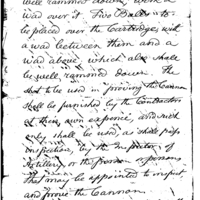 well rammed down, with a
wad over it. Two Balls to
be placed over the Cartridge, with
a wad between them and a
wad above, which also shall
be well rammed down. The
shot to be used in proving the Cannon
shall be furnished by the Contractors
at their own expence, and such
only shall be used, as shall pass
inspection, by the Inspector of
Artillery, or the person or persons
that may be appointed to inspect
and prove the Cannon.